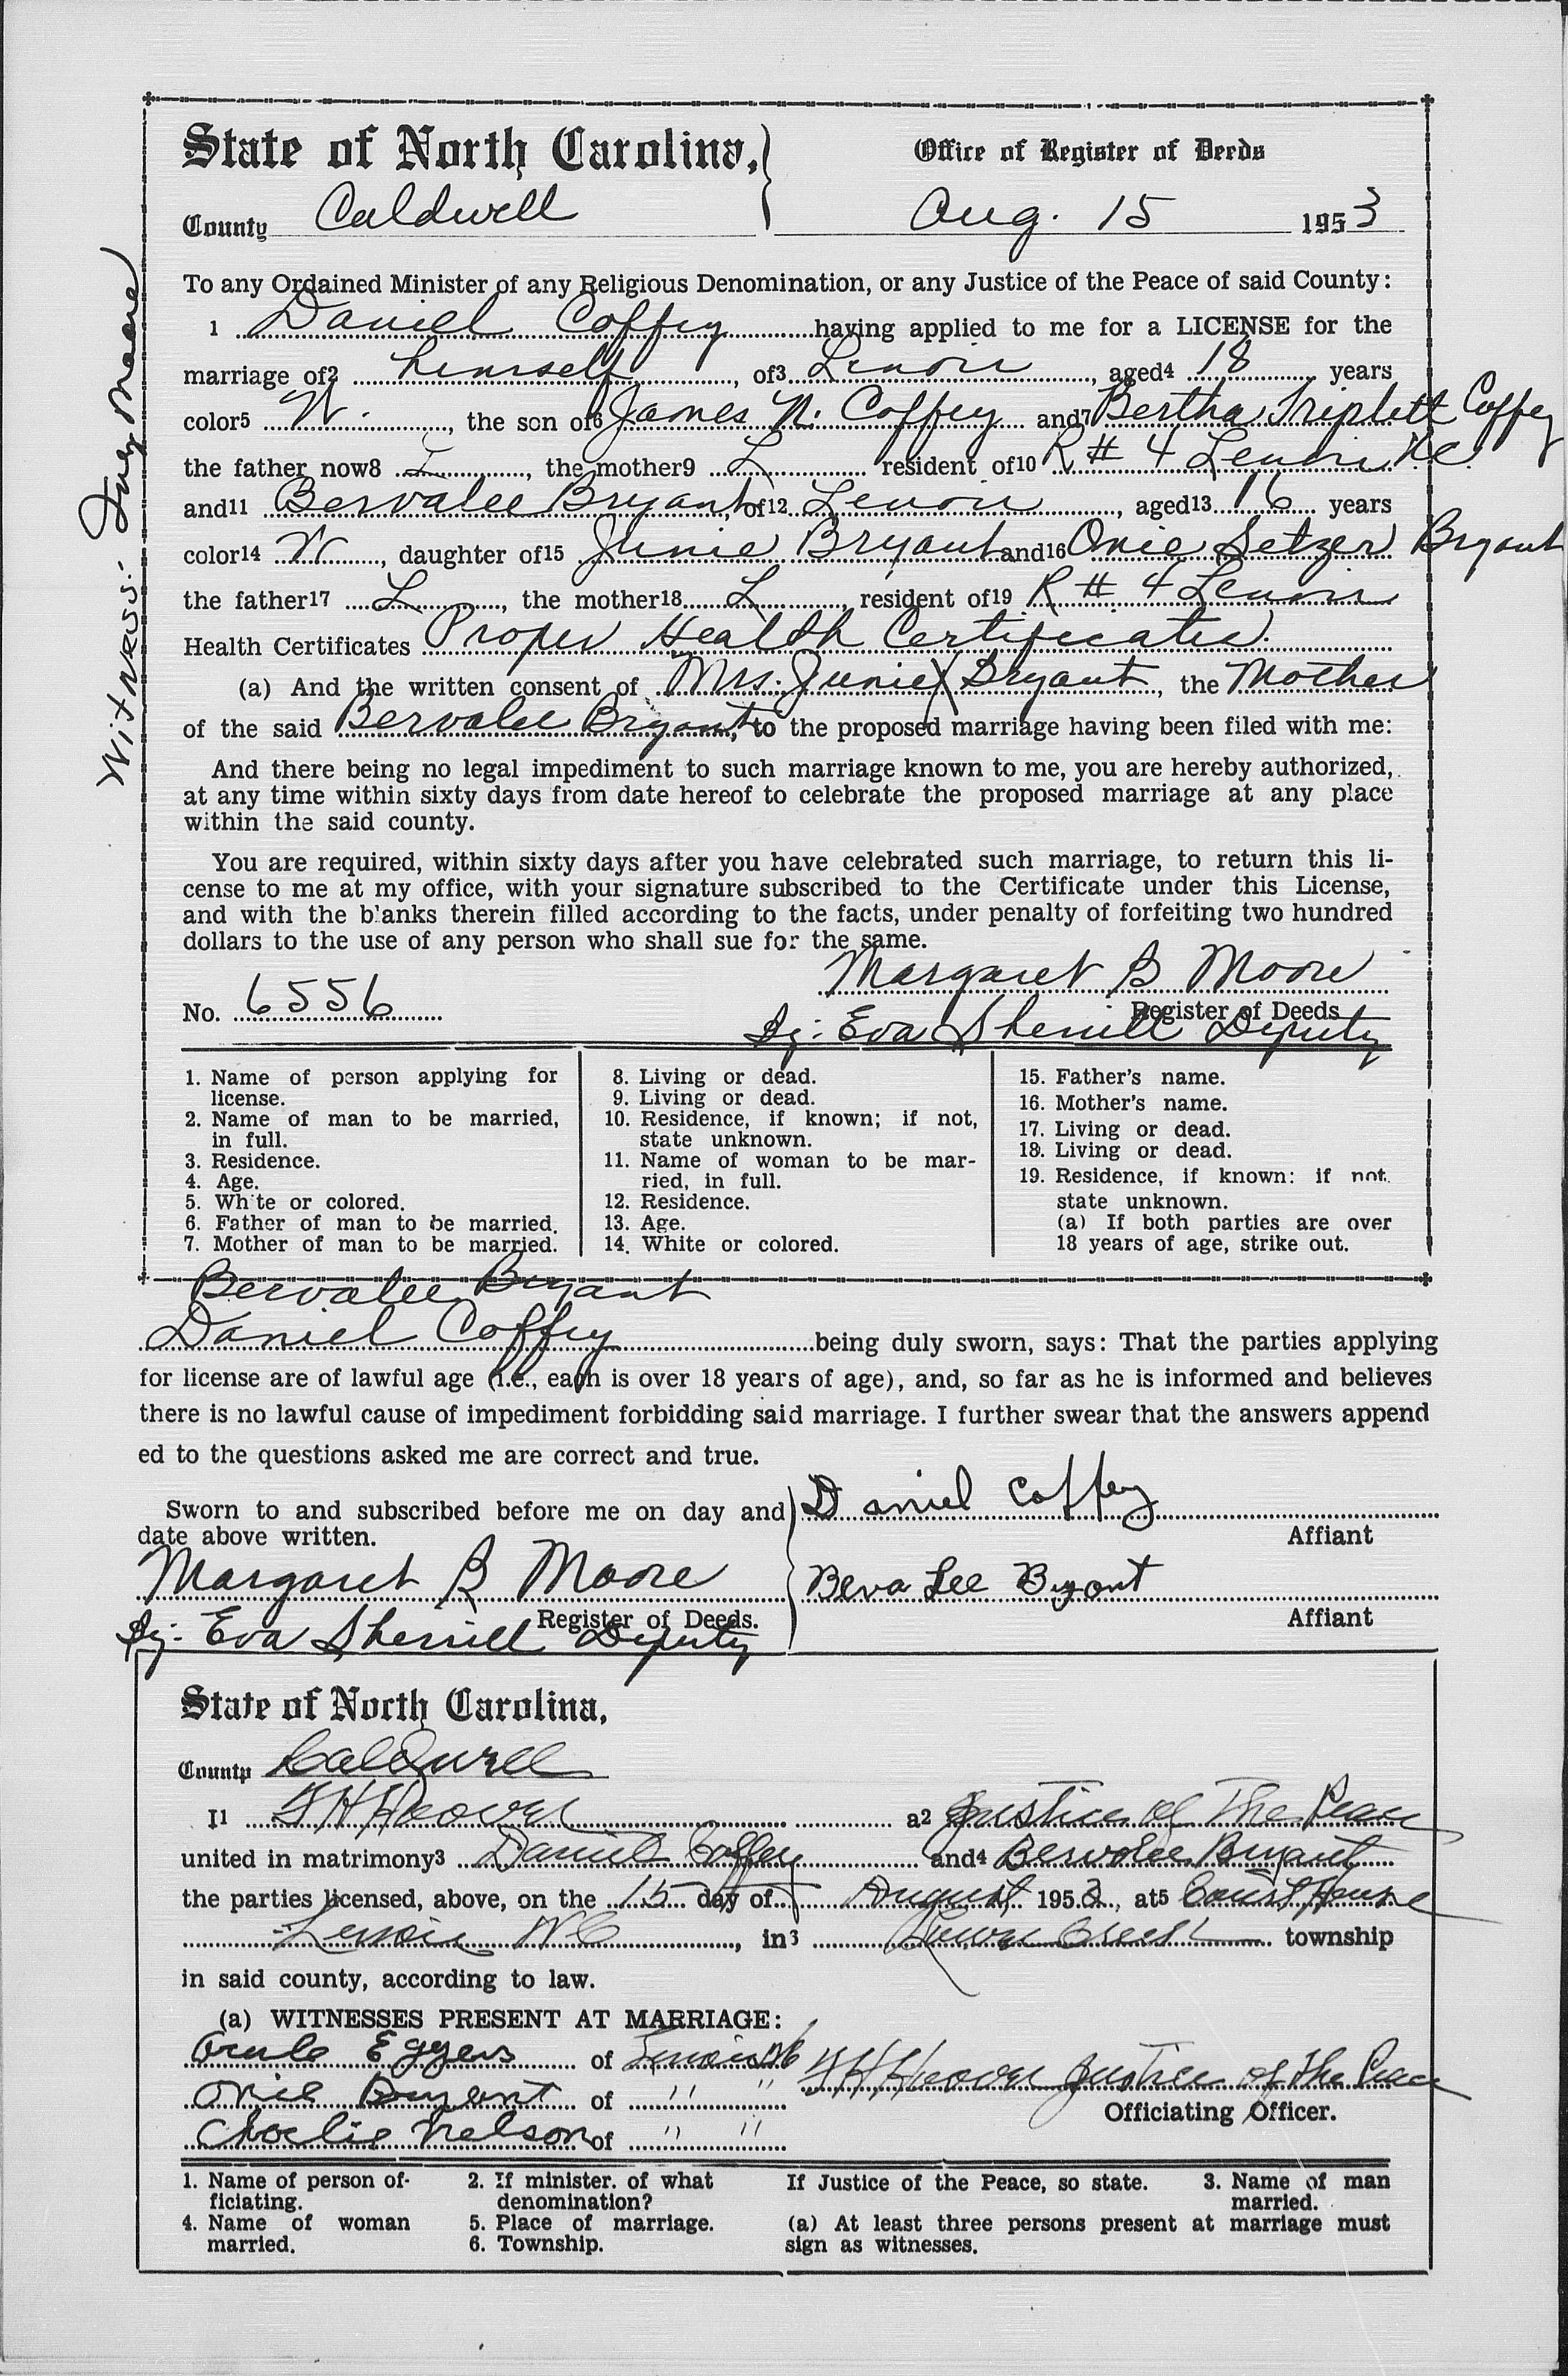 State of North Carolina,
Office of Register of Deeds
County Caldwell
Aug. 15 1953
To any Ordained Minister of any Religious Denomination, or any Justice of the Peace of said County:
1 Daniel Coffey having applied to me for a LICENSE for the
marriage of2 himself, of3 Lenoir, aged4 18 years
color5 W., the son of6 James N. Coffey and7 Bertha Triplett Coffey
the father now8 L, the mother9 L resident of10 R # 4 Lenoir N.C.
and11 Bervalee Bryant, of12 Lenoir, aged13 16 years
color14 W, daughter of15 Junie Bryant and16 Onie Setzer Bryant
the father17 L, the mother18 L, resident of19 R # 4 Lenoir
Health Certificates Proper Health Certificates.
(a) And the written consent of Mrs. Junie X Bryant, the Mother
of the said Bervalee Bryant, to the proposed marriage having been filed with me:
Witness: Moore
And there being no legal impediment to such marriage known to me, you are hereby authorized,
at any time within sixty days from date hereof to celebrate the proposed marriage at any place
within the said county.
You are required, within sixty days after you have celebrated such marriage, to return this li-
cense to me at my office, with your signature subscribed to the Certificate under this License,
and with the blanks therein filled according to the facts, under penalty of forfeiting two hundred
dollars to the use of any person who shall sue for the same.
Margaret B Moore
No. 6556
Register of Deeds
By: Eva Sherrill Deputy
1. Name of person applying for
license.
2. Name of man to be married,
in full.
3. Residence.
4. Age.
5. White or colored.
6. Father of man to be married.
7. Mother of man to be married.
8. Living or dead.
9. Living or dead.
10. Residence, if known; if not,
state unknown.
11. Name of woman to be mar-
ried, in full.
12. Residence.
13. Age.
14. White or colored.
15. Father's name.
16. Mother's name.
17. Living or dead.
18. Living or dead.
19. Residence, if known: if not.
state unknown.
(a) If both parties are over
18 years of age, strike out.
Bervalee Bryant
Daniel Coffey being duly sworn, says: That the parties applying
for license are of lawful age (i.e., each is over 18 years of age), and, so far as he is informed and believes
there is no lawful cause of impediment forbidding said marriage. I further swear that the answers append
ed to the questions asked me are correct and true.
Sworn to and subscribed before me on day and
date above written.
Daniel Coffey
Affiant
Margaret B Moore
Register of Deeds.
By: Eva Sherrill Deputy
Beva Lee Bryont
Affiant
State of North Carolina,
County Caldwell
I1 Hoover a2 Justice of The Peace
united in matrimony3 Daniel Coffey and4 Bervalee Bryant
the parties licensed, above, on the 15 day of August 1953, at5 Court House
Lenoir NC, in3 Creek township
in said county, according to law.
(a) WITNESSES PRESENT AT MARRIAGE:
Eggers of Lenoir NC
Onie Bryant of " "
Nelson of " "
Hoover Justice of the Peace
Officiating Officer.
1. Name of person of-
ficiating.
2. If minister. of what
denomination?
If Justice of the Peace, so state.
3. Name of man
married.
4. Name of woman
married.
5. Place of marriage.
6. Township.
(a) At least three persons present at marriage must
sign as witnesses.